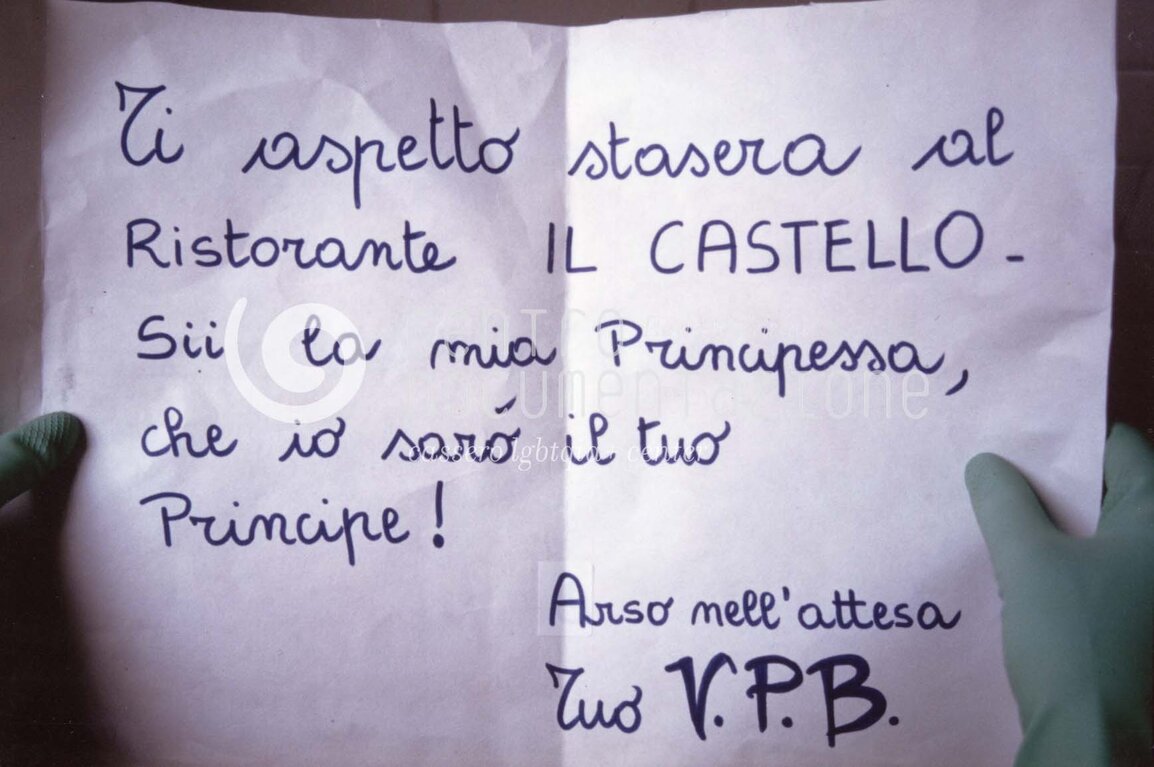 Ti aspetto stasera al
Ristorante IL CASTELLO -
Sii la mia Principessa,
che io saró il tuo
Principe!
Arso nell'attesa
Tuo V.P.B.
centro
documentazione
cassero lgbtqia+ center